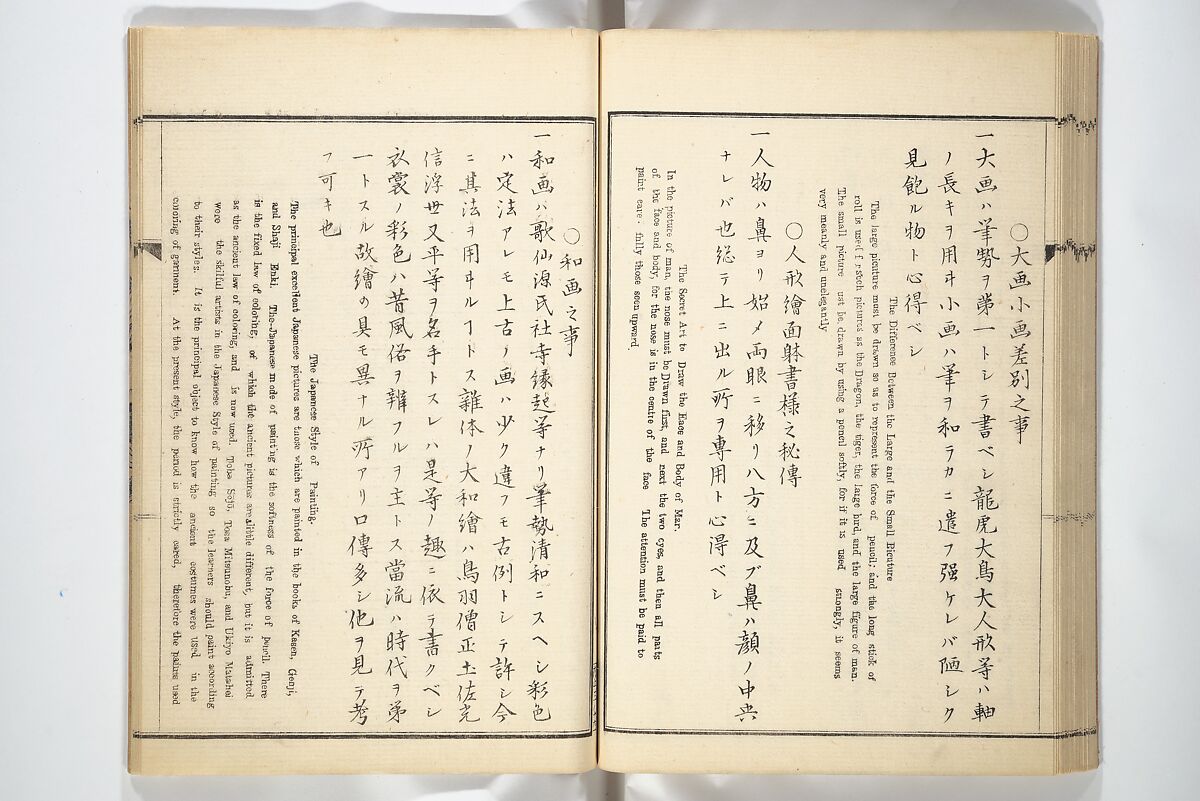 〇大画小画差別之事
一大画ハ筆勢ヲ第一トシテ書ベシ龍虎大鳥大人形等ハ軸
ノ長キヲ用ヰ小画ハ筆ヲ和ラカニ遣フ强ケレバ陋シク
見飽ル物ト心得ベシ
The Difference Between the Large and the Small Picuture
The large picuture must be drawn so as to represent the force of pencil; and the long stick of
roll is used f sketch pictures as the Dragon, the tiger, the large bird, and the large figure of man.
The small picture ust be drawn by using a pencil softly, for if it is used snongly, it seems
very meanly and unelegantly
〇人形繪面躰書様之秘傳
一人物ハ鼻ヨリ始メ両眼ニ移リ八方ニ及ブ鼻ハ顔ノ中央
ナレバ也総テ上ニ出ル所ヲ専用ト心得ベシ
The Secret Art to Draw the Face and Body of Mar.
In the picture of man, the nose must be Drawn first, and next the two eyes, and then all parts
of the face and body, for the nose is in the centre of the face The attention must be paid to
paint care. fully those seen upward.
〇和画之事
一和画ハ歌仙源氏社寺縁起等ナリ筆勢清和ニスヘシ彩色
ハ定法アレモ上古ノ画ハ少ク違フモ古例トシテ許シ今
ニ其法ヲ用ヰルヿトス雑体ノ大和繪ハ鳥羽僧正土佐光
信浮世又平等ヲ名手トスレハ是等ノ趣ニ依テ書クベシ
衣裳ノ彩色ハ昔風俗ヲ辨フルヲ主トス當流ハ時代ヲ第
一トスル故繪の具モ異ナル所アリ口傳多シ他ヲ見テ考
フ可キ也
The Japanese Style of Painting.
The principal excellent Japanese pictures are those which are painted in the books of Kasen, Genji,
and Shaji Enki. The-Japanese mode of painting is the softness of the force of pencil. There
is the fixed law of coloring, of which the ancient pictures are alittle different, but it is admitted
as the ancient law of coloring, and is now used. Toba Sojō, Tosa Mitsunobu, and Ukiyo Matahei
were the skilful artists in the Japanese Style of painting so the learners should paint according
to their styles. It is the principal object to know how the ancient costumes were used in the
coloring of garment. At the present style, the period is strictly cared, therefore the paints used